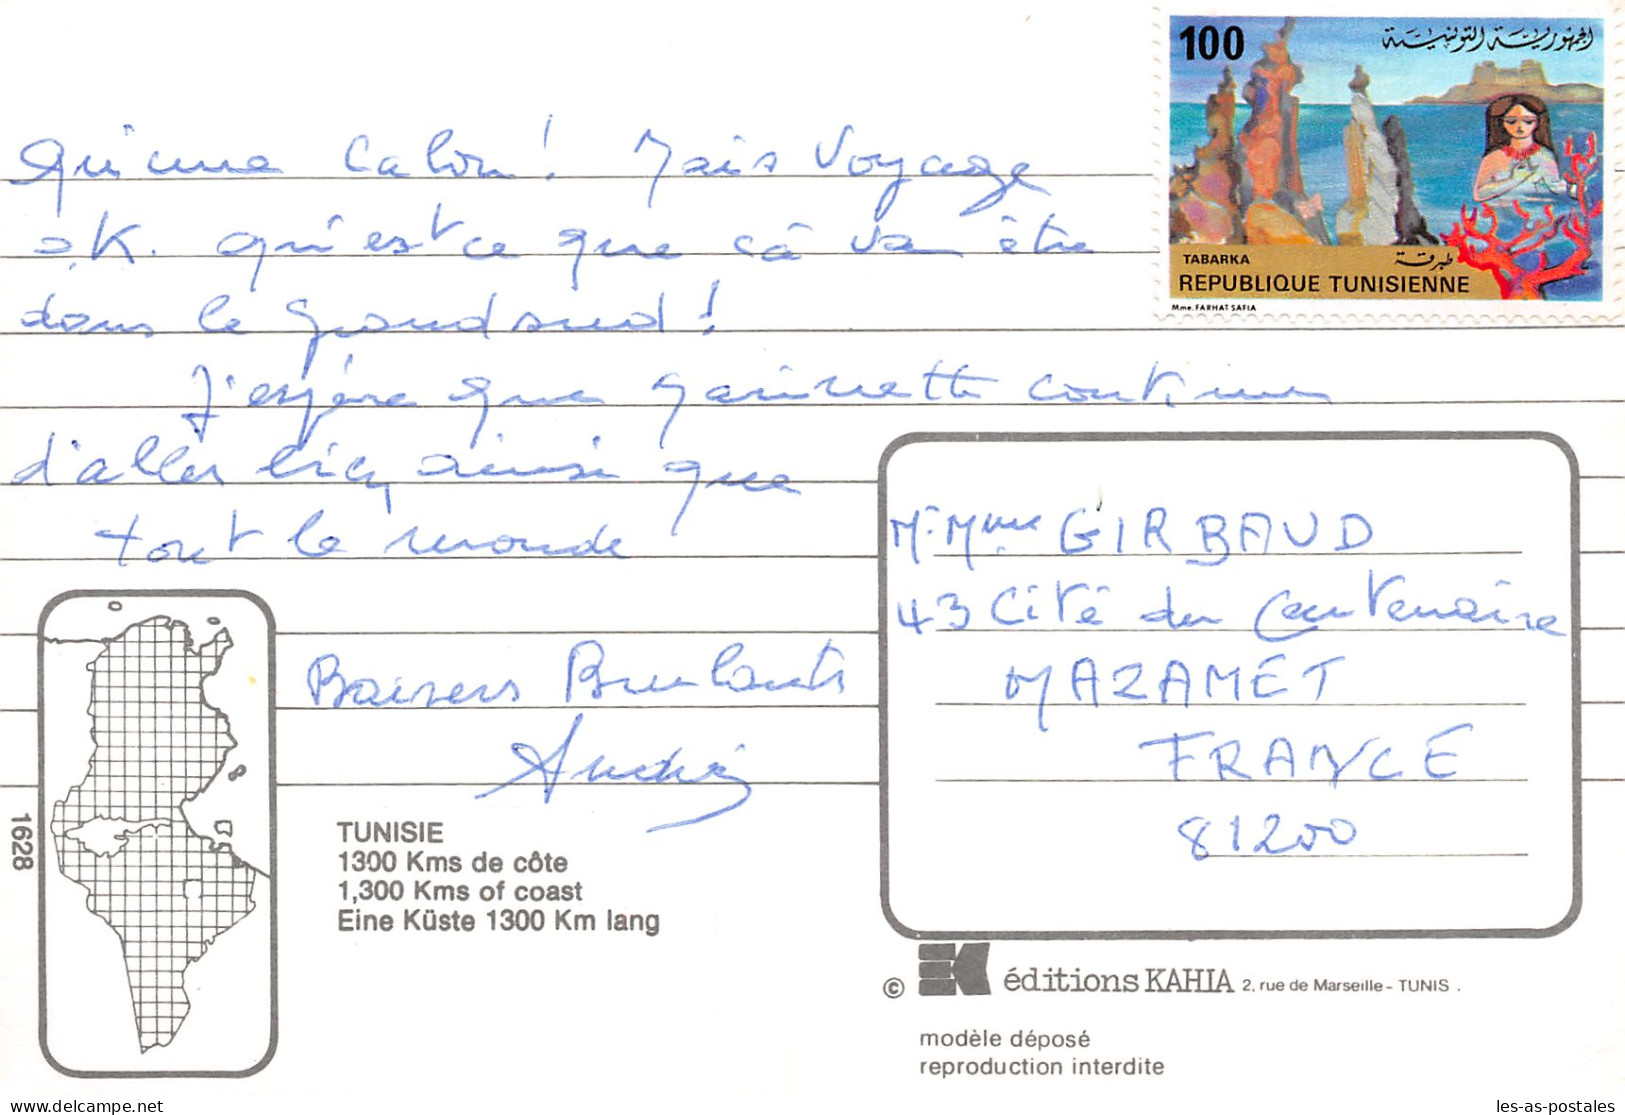 100
الجمهورية التونسية
TABARKA طبرقة
REPUBLIQUE TUNISIENNE
Mme. FARHAT SAFIA
Qu'une calor! Mais voyage
O.K. qu'est ce que cà va être
dans le grand sud!
J'espère que continue
d'aller bien, ainsi que
tout le monde
Baisers Brulants
M. Mme GIRBAUD
43 Cité du Centenaire
MAZAMET
FRANCE
81200
1628
TUNISIE
1300 Kms de côte
1,300 Kms of coast
Eine Küste 1300 Km lang
© éditions KAHIA 2, rue de Marseille - TUNIS .
modèle déposé
reproduction interdite
Delcampe.net
les-as-postales